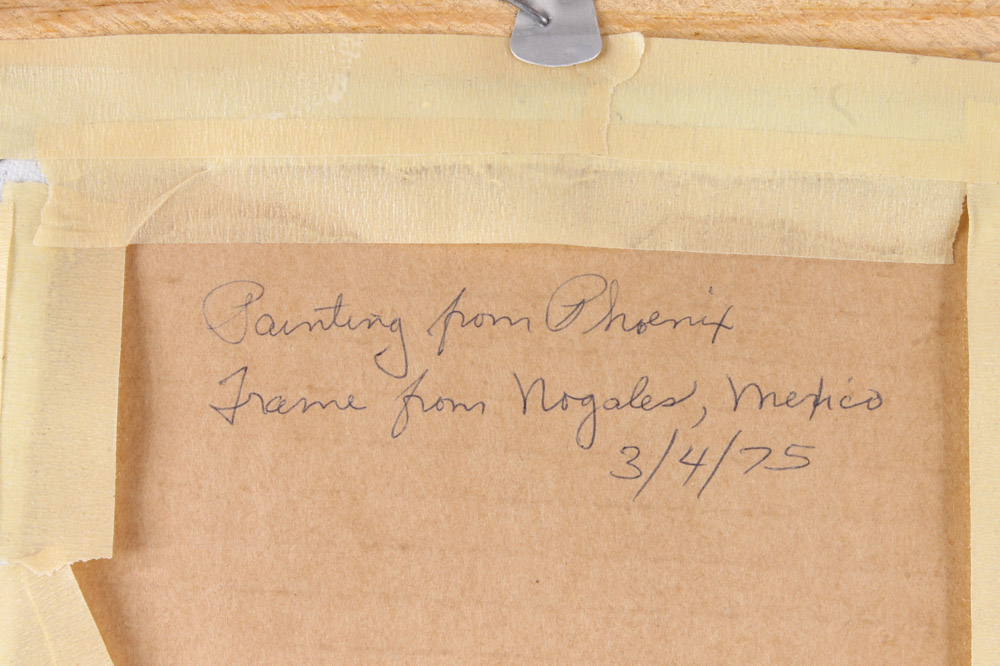 Painting from Phoenix
Frame from Nogales, Mexico
3/4/75